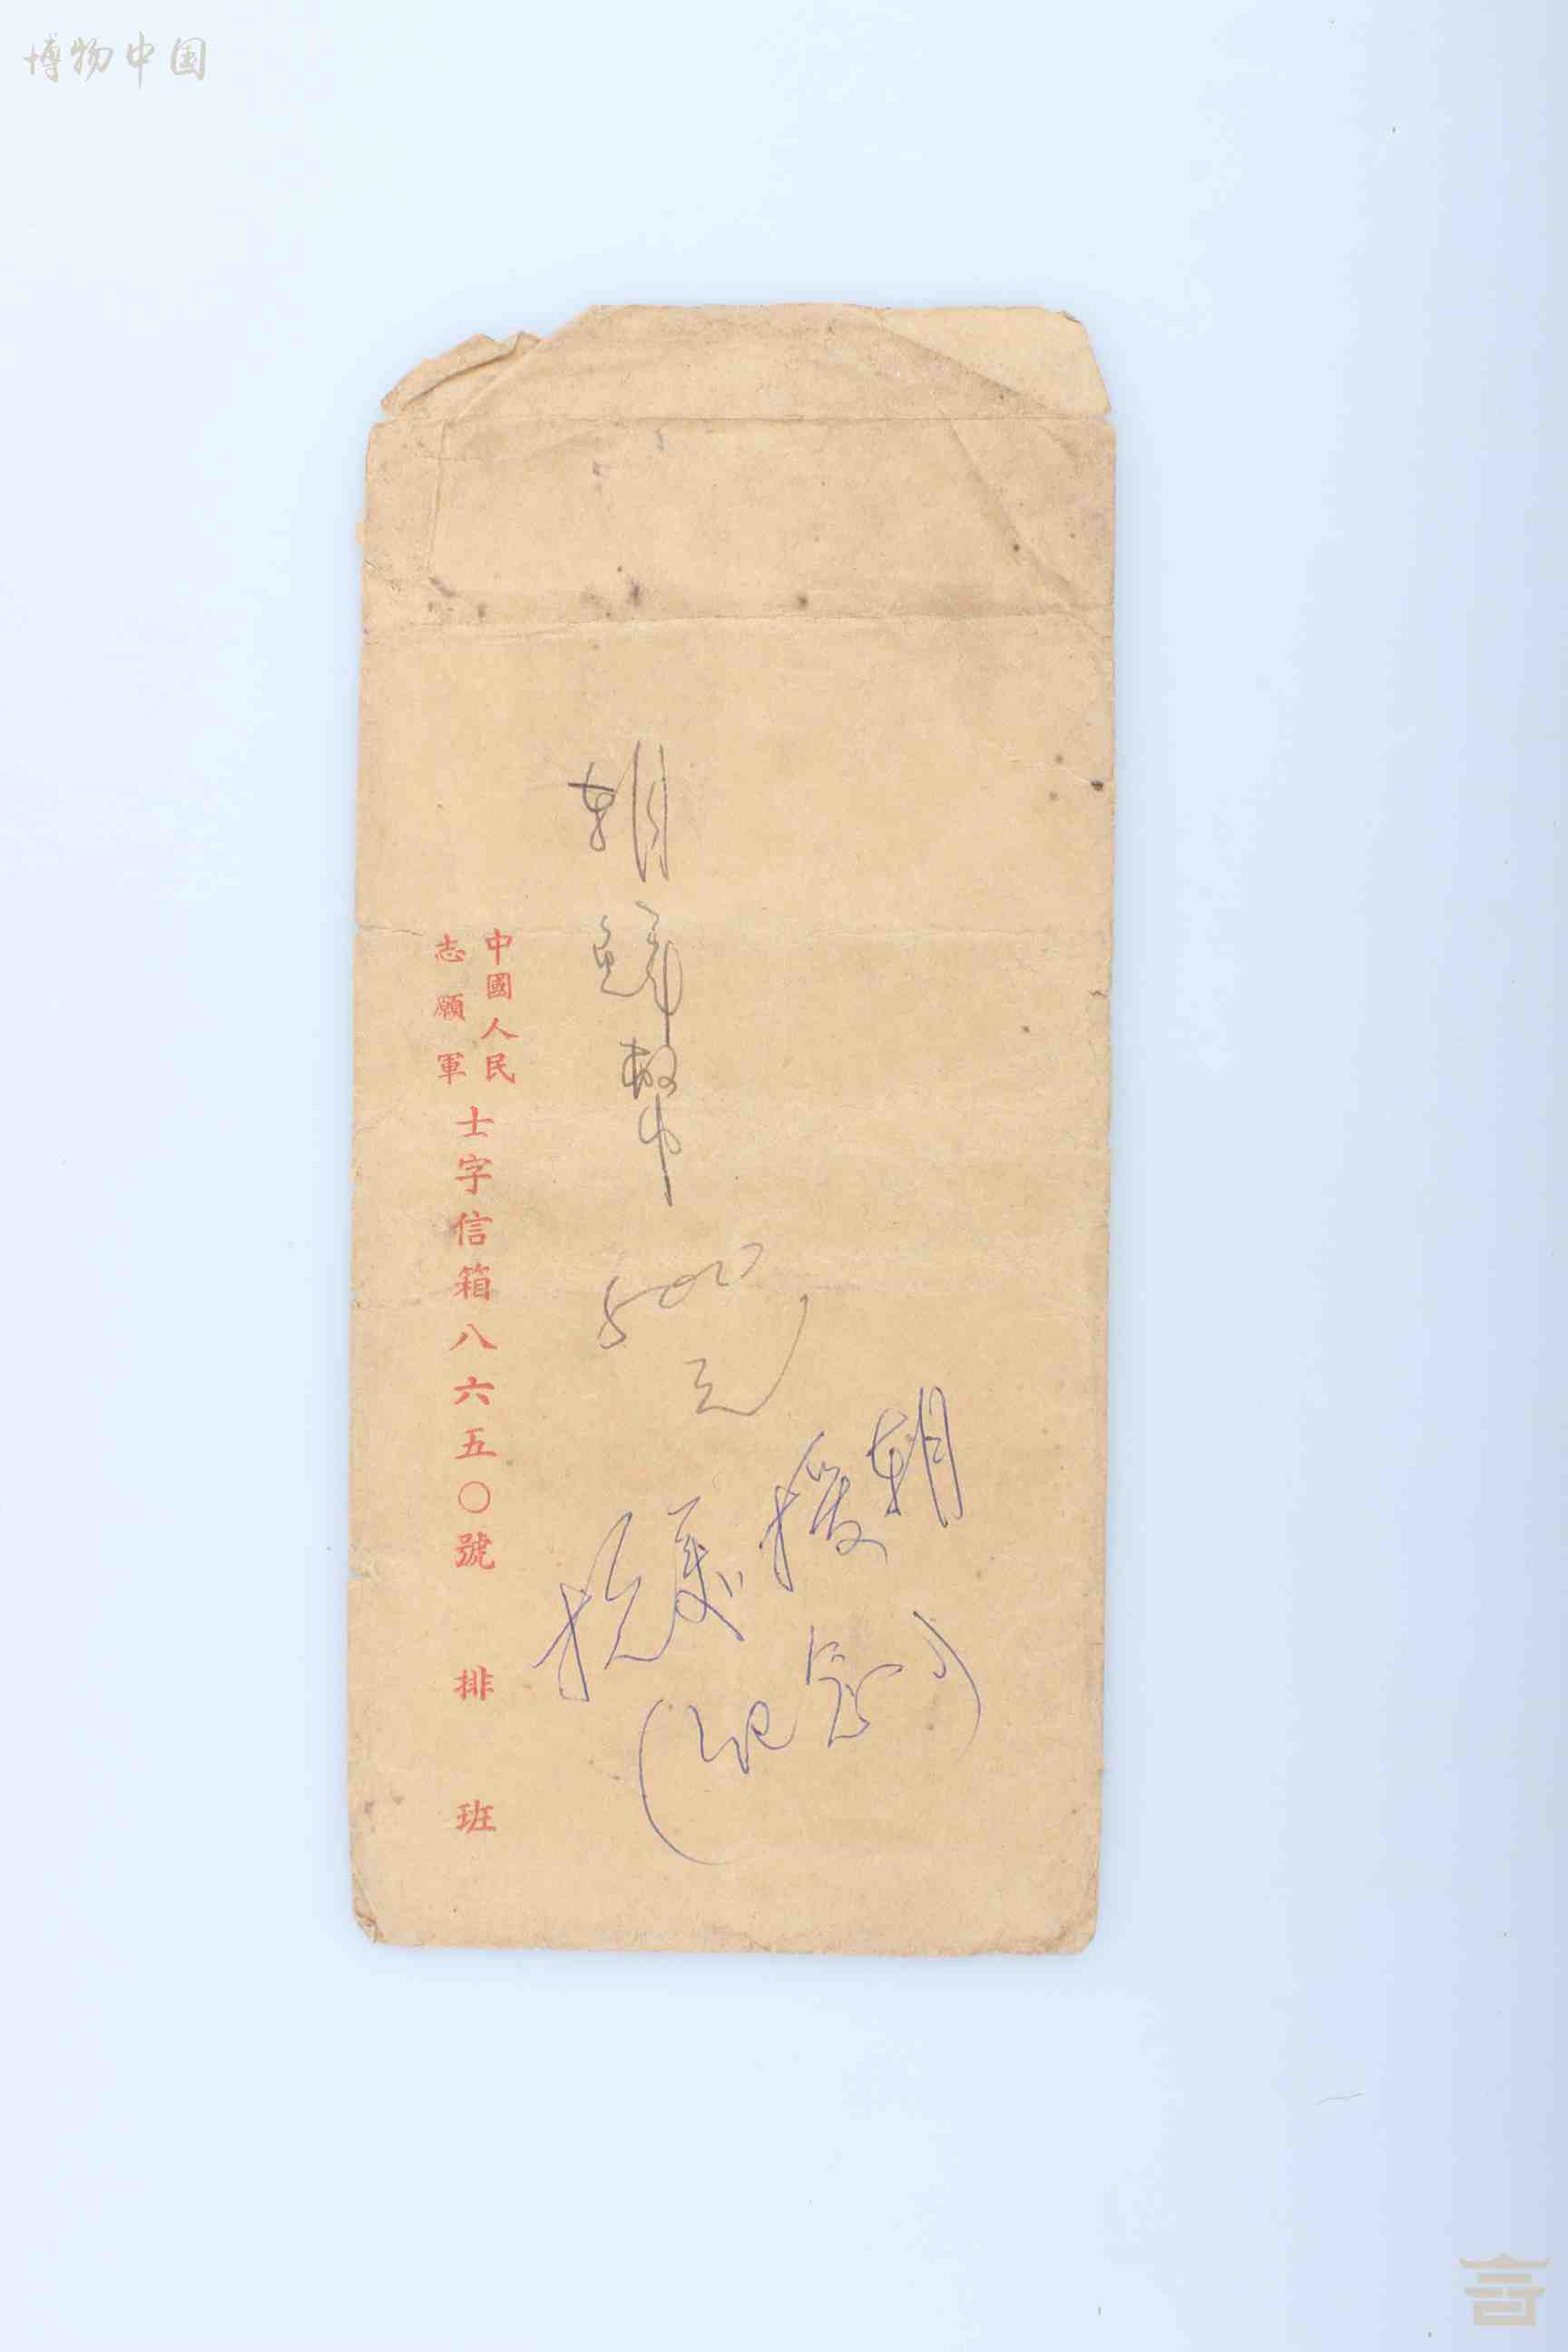 博物中国
朝鲜幣
500元
抗美援朝
(纪念)
中國人民
志願軍
士字信箱八六五〇號 排 班